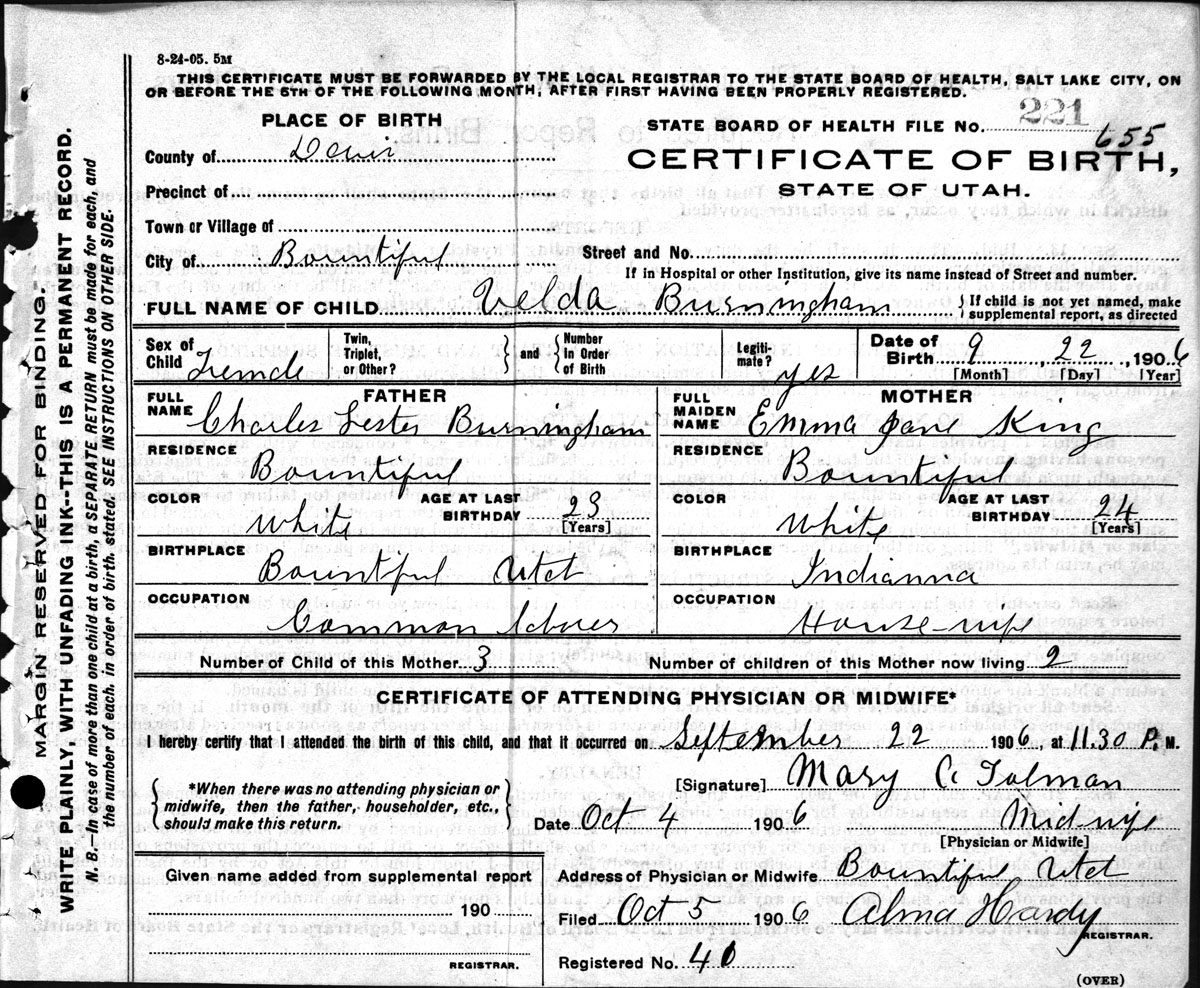 8-24-05. 5M
THIS CERTIFICATE MUST BE FORWARDED BY THE LOCAL REGISTRAR TO THE STATE BOARD OF HEALTH, SALT LAKE CITY, ON
OR BEFORE THE 5TH OF THE FOLLOWING MONTH, AFTER FIRST HAVING BEEN PROPERLY REGISTERED.
PLACE OF BIRTH
STATE BOARD OF HEALTH FILE No. 221
655
County of Davis
CERTIFICATE OF BIRTH,
Precinct of
STATE OF UTAH.
Town or Village of
City of Bountiful
Street and No.
If in Hospital or other Institution, give its name instead of Street and number.
FULL NAME OF CHILD Velda Burningham } If child is not yet named, make supplemental report, as directed
Sex of Child Female
Twin, Triplet, or Other? } and { Number in Order of Birth
Legiti-mate? yes
Date of Birth 9 22, 1906
[Month] [Day] [Year]
FATHER
FULL NAME Charles Lester Burningham
RESIDENCE Bountiful
COLOR White
AGE AT LAST BIRTHDAY 23 [Years]
BIRTHPLACE Bountiful Utah
OCCUPATION Common Laborer
MOTHER
FULL MAIDEN NAME Emma Jane King
RESIDENCE Bountiful
COLOR White
AGE AT LAST BIRTHDAY 24 [Years]
BIRTHPLACE Indianna
OCCUPATION House-wife
Number of Child of this Mother 3
Number of children of this Mother now living 2
CERTIFICATE OF ATTENDING PHYSICIAN OR MIDWIFE*
I hereby certify that I attended the birth of this child, and that it occurred on September 22 1906, at 11.30 P. M.
*When there was no attending physician or
midwife, then the father, householder, etc.,
should make this return.
[Signature] Mary C. Tolman
Date Oct 4 1906 Midwife
[Physician or Midwife]
Given name added from supplemental report
190
REGISTRAR.
Address of Physician or Midwife Bountiful Utah
Filed Oct 5 1906 Alma Hardy
REGISTRAR.
Registered No. 40
(OVER)
MARGIN RESERVED FOR BINDING
WRITE PLAINLY, WITH UNFADING INK--THIS IS A PERMANENT RECORD.
N. B.—In case of more than one child at a birth, a SEPARATE RETURN must be made for each, and
the number of each, in order of birth stated. SEE INSTRUCTIONS ON OTHER SIDE.